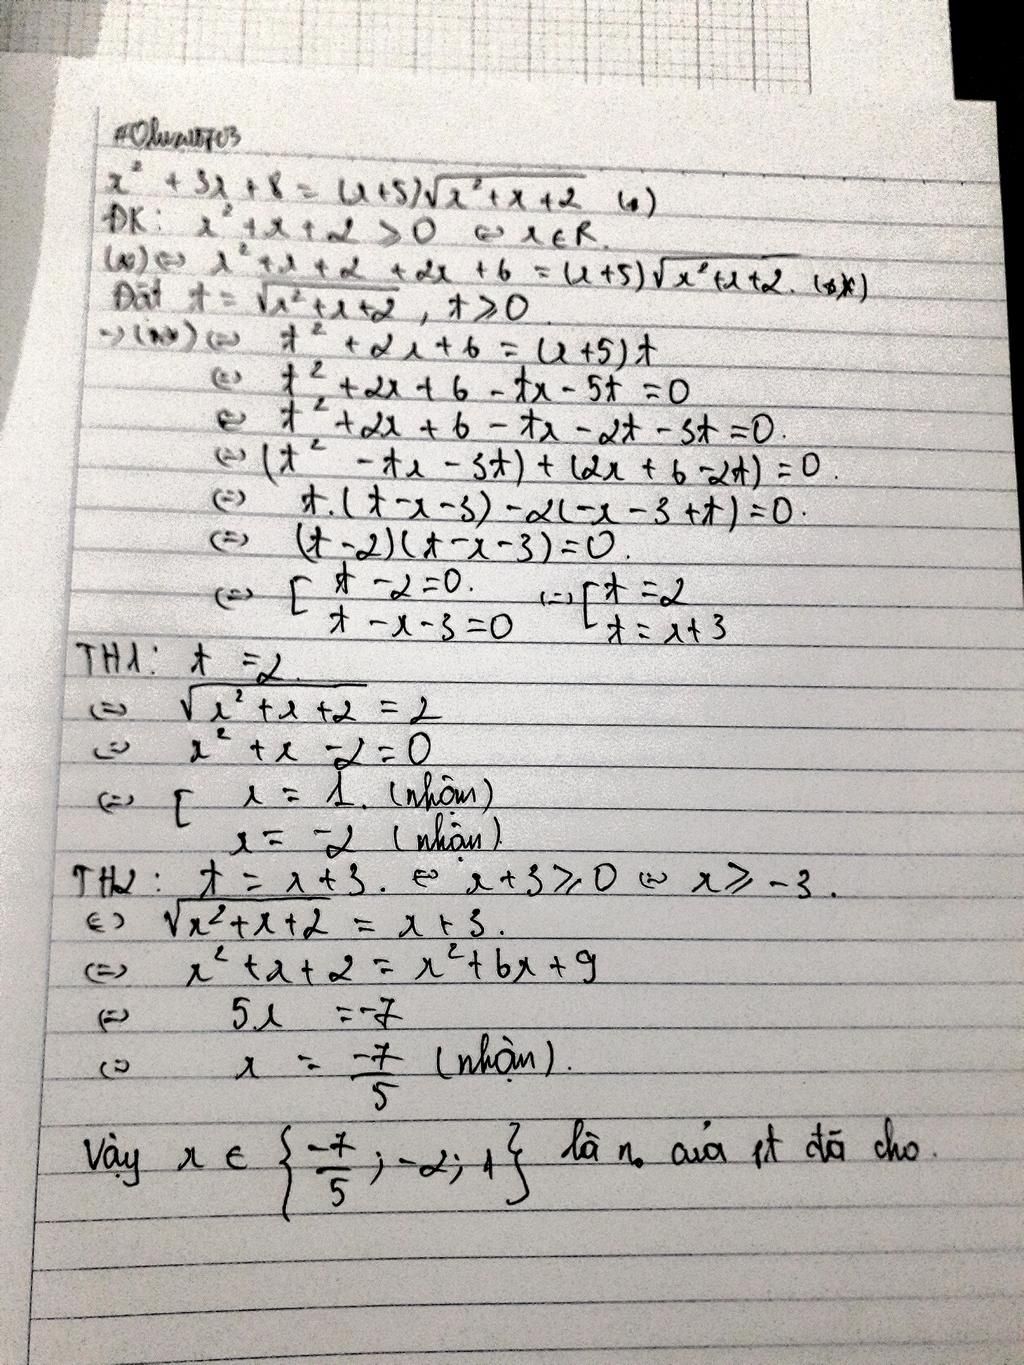 x² + 3x + 8 = (x+5)√x²+x+2 (*)
ĐK: x² + x + 2 ≥ 0 ⇔ x ∈ R.
(*) ⇔ x² + x + 2 + 2x + 6 = (x+5)√x²+x+2. (**)
Đặt t = √x²+x+2, t ≥ 0
→ (**) ⇔ t² + 2x + 6 = (x+5)t
⇔ t² + 2x + 6 - tx - 5t = 0
⇔ t² + 2x + 6 - tx - 2t - 3t = 0.
⇔ (t² - tx - 3t) + (2x + 6 - 2t) = 0.
⇔ t.(t - x - 3) - 2(-x - 3 + t) = 0.
⇔ (t - 2)(t - x - 3) = 0.
⇔ [ t - 2 = 0. ⇔ [ t = 2
t - x - 3 = 0 t = x + 3
TH1: t = 2
⇔ √x² + x + 2 = 2
⇔ x² + x - 2 = 0
⇔ [ x = 1. (nhận)
x = -2 (nhận).
TH2: t = x + 3. ⇔ x + 3 ≥ 0 ⇔ x ≥ -3.
⇔ √x² + x + 2 = x + 3.
⇔ x² + x + 2 = x² + 6x + 9
⇔ 5x = -7
⇔ x = -7/5 (nhận).
Vậy x ∈ {-7/5; -2; 1} là n₀ của pt đã cho.